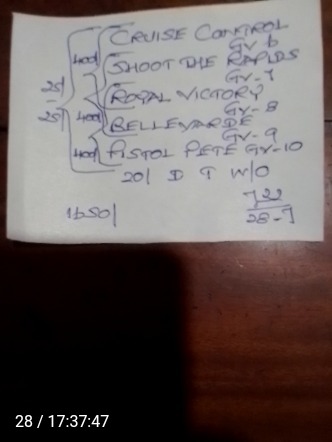 CRUISE CONTROL
GV-6
SHOOT THE RAPIDS
GV-7
ROYAL VICTORY
GV-8
BELLEVARDE
GV-9
PISTOL PETE GV-10
400/
400/
400/
25/
25/
20/ D T W/O
1650/
722
28-7
28 / 17:37:47